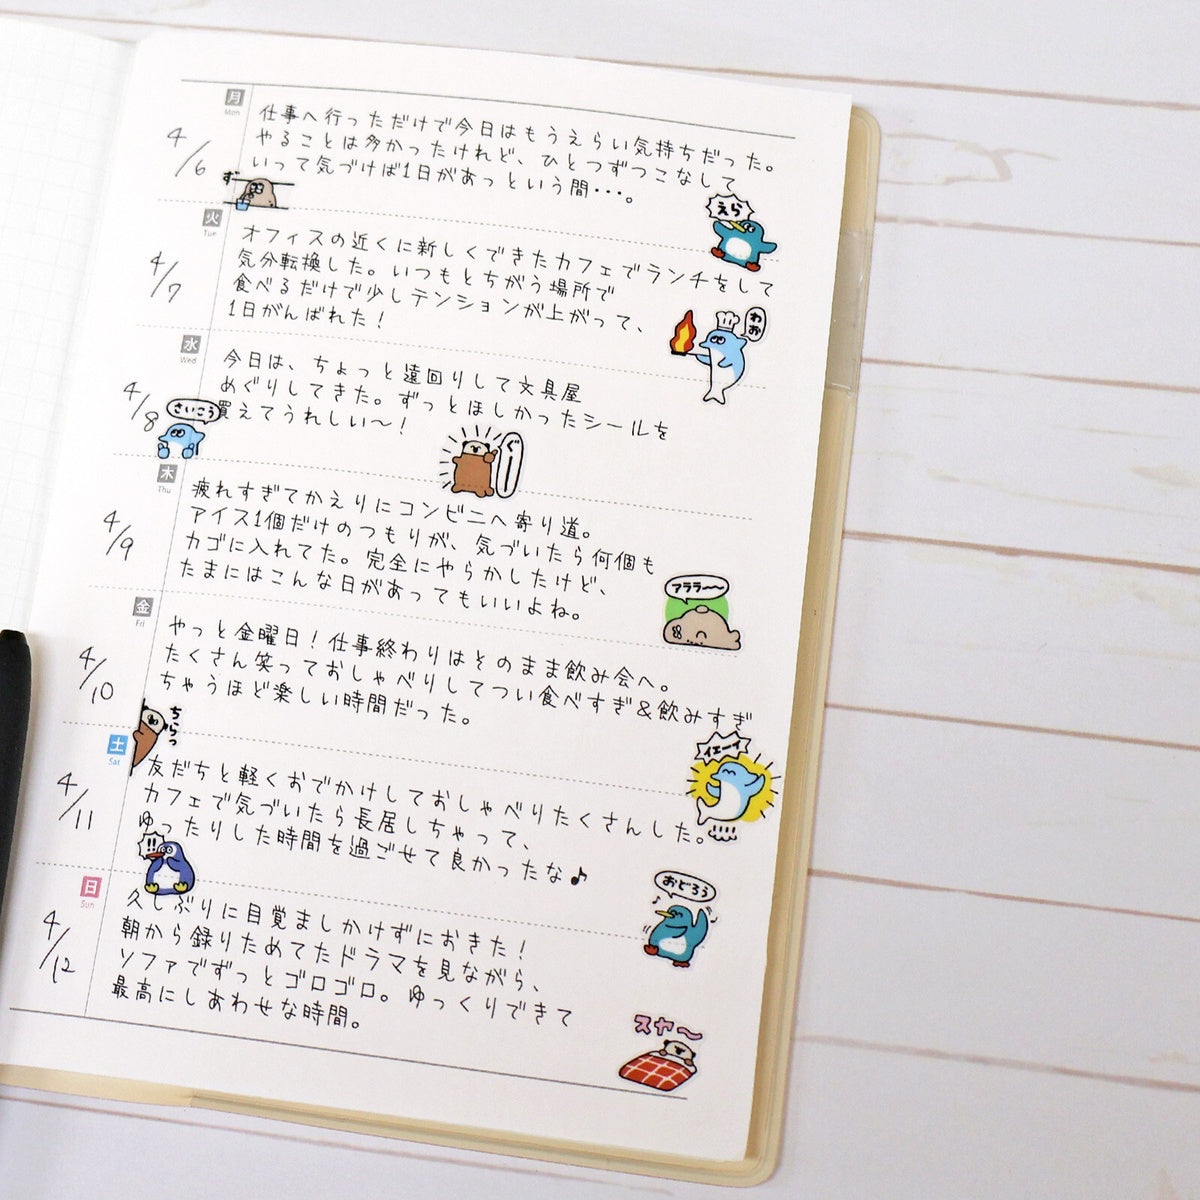 月
Mon
4/6
仕事へ行っただけで今日はもうえらい気持ちだった。
やることは多かったけれど、ひとつずつこなして
いって気づけば1日があっという間・・・。
ず
えら
火
Tue
4/7
オフィスの近くに新しくできたカフェでランチをして
気分転換した。いつもとちがう場所で
食べるだけで少しテンションが上がって、
1日がんばれた!
わお
水
Wed
4/8
今日は、ちょっと遠回りして文具屋
めぐりしてきた。ずっとほしかったシールを
買えてうれしい〜!
さいこう
ぐー
木
Thu
4/9
疲れすぎてかえりにコンビニへ寄り道。
アイス1個だけのつもりが、気づいたら何個も
カゴに入れてた。完全にやらかしたけど、
たまにはこんな日があってもいいよね。
アララ〜〜
金
Fri
4/10
やっと金曜日!仕事終わりはそのまま飲み会へ。
たくさん笑っておしゃべりしてつい食べすぎ&飲みすぎ
ちゃうほど楽しい時間だった。
ちらっ
イエーイ
土
Sat
4/11
友だちと軽くおでかけしておしゃべりたくさんした。
カフェで気づいたら長居しちゃって、
ゆったりした時間を過ごせて良かったな♪
!!
おどろう
日
Sun
4/12
久しぶりに目覚ましかけずにおきた!
朝から録りためてたドラマを見ながら、
ソファでずっとゴロゴロ。ゆっくりできて
最高にしあわせな時間。
スヤ〜